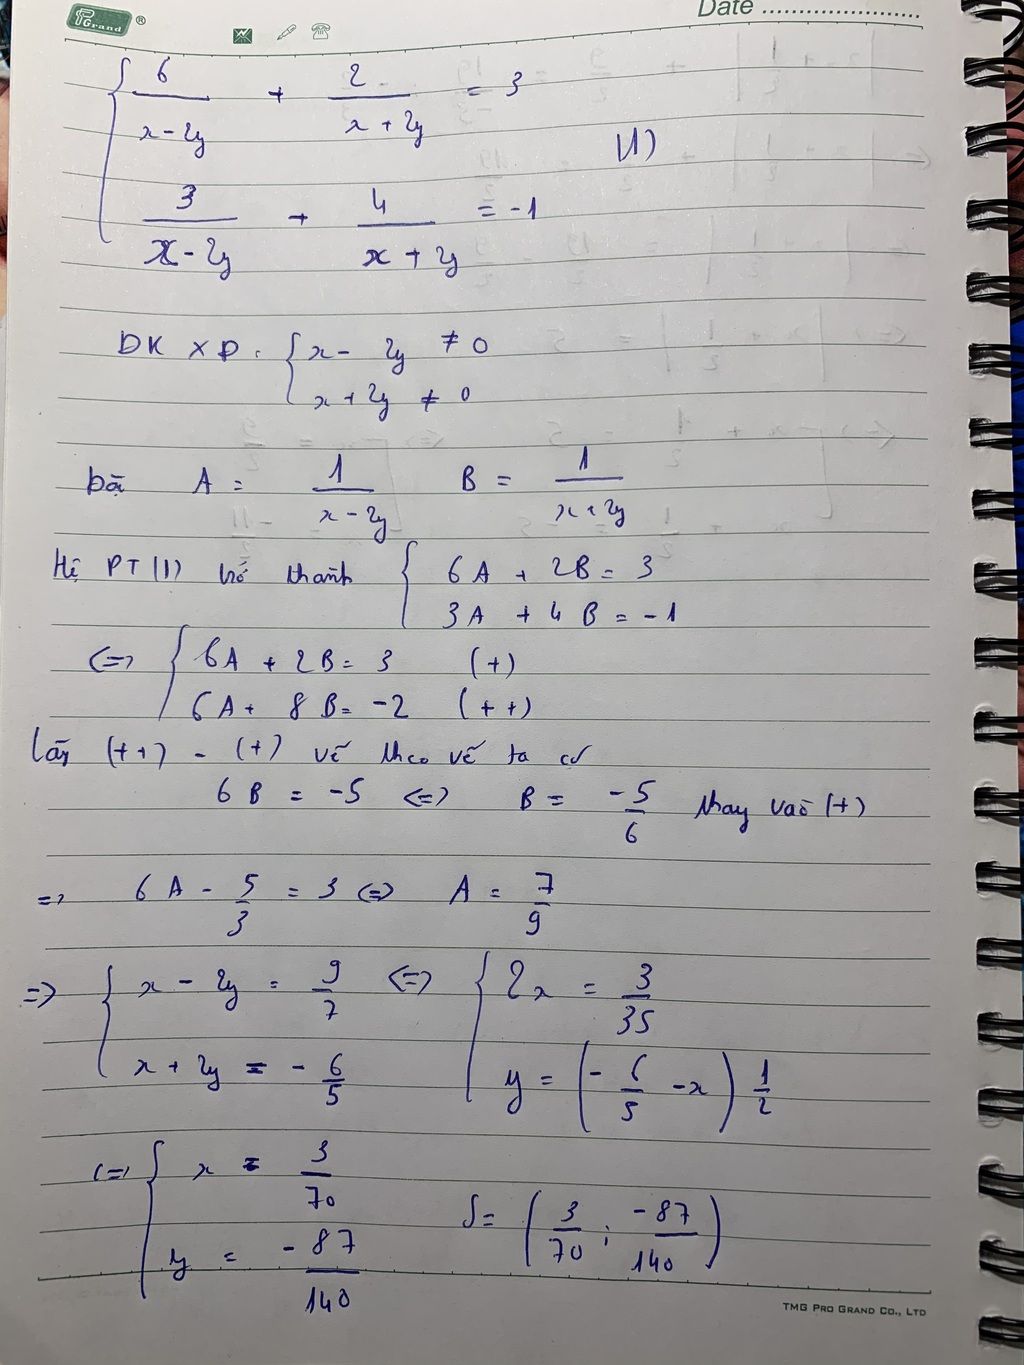 PGrand ®
Date ........................
{ 6/(x - 2y) + 2/(x + 2y) = 3
(1)
3/(x - 2y) + 4/(x + 2y) = -1
ĐK XĐ: { x - 2y ≠ 0
x + 2y ≠ 0
A = 1/(x - 2y) B = 1/(x + 2y)
Hệ PT (1) trở thành { 6A + 2B = 3
3A + 4B = -1
<=> { 6A + 2B = 3 (+)
6A + 8B = -2 (++)
Lấy (++) - (+) vế theo vế ta có
6B = -5 <=> B = -5/6 thay vào (+)
=> 6A - 5/3 = 3 <=> A = 7/9
=> { x - 2y = 9/7 <=> { 2x = 3/35
x + 2y = - 6/5 y = (- 6/5 - x) 1/2
<=> { x = 3/70
S = (3/70 ; -87/140)
y = -87/140
TMG PRO GRAND CO., LTD